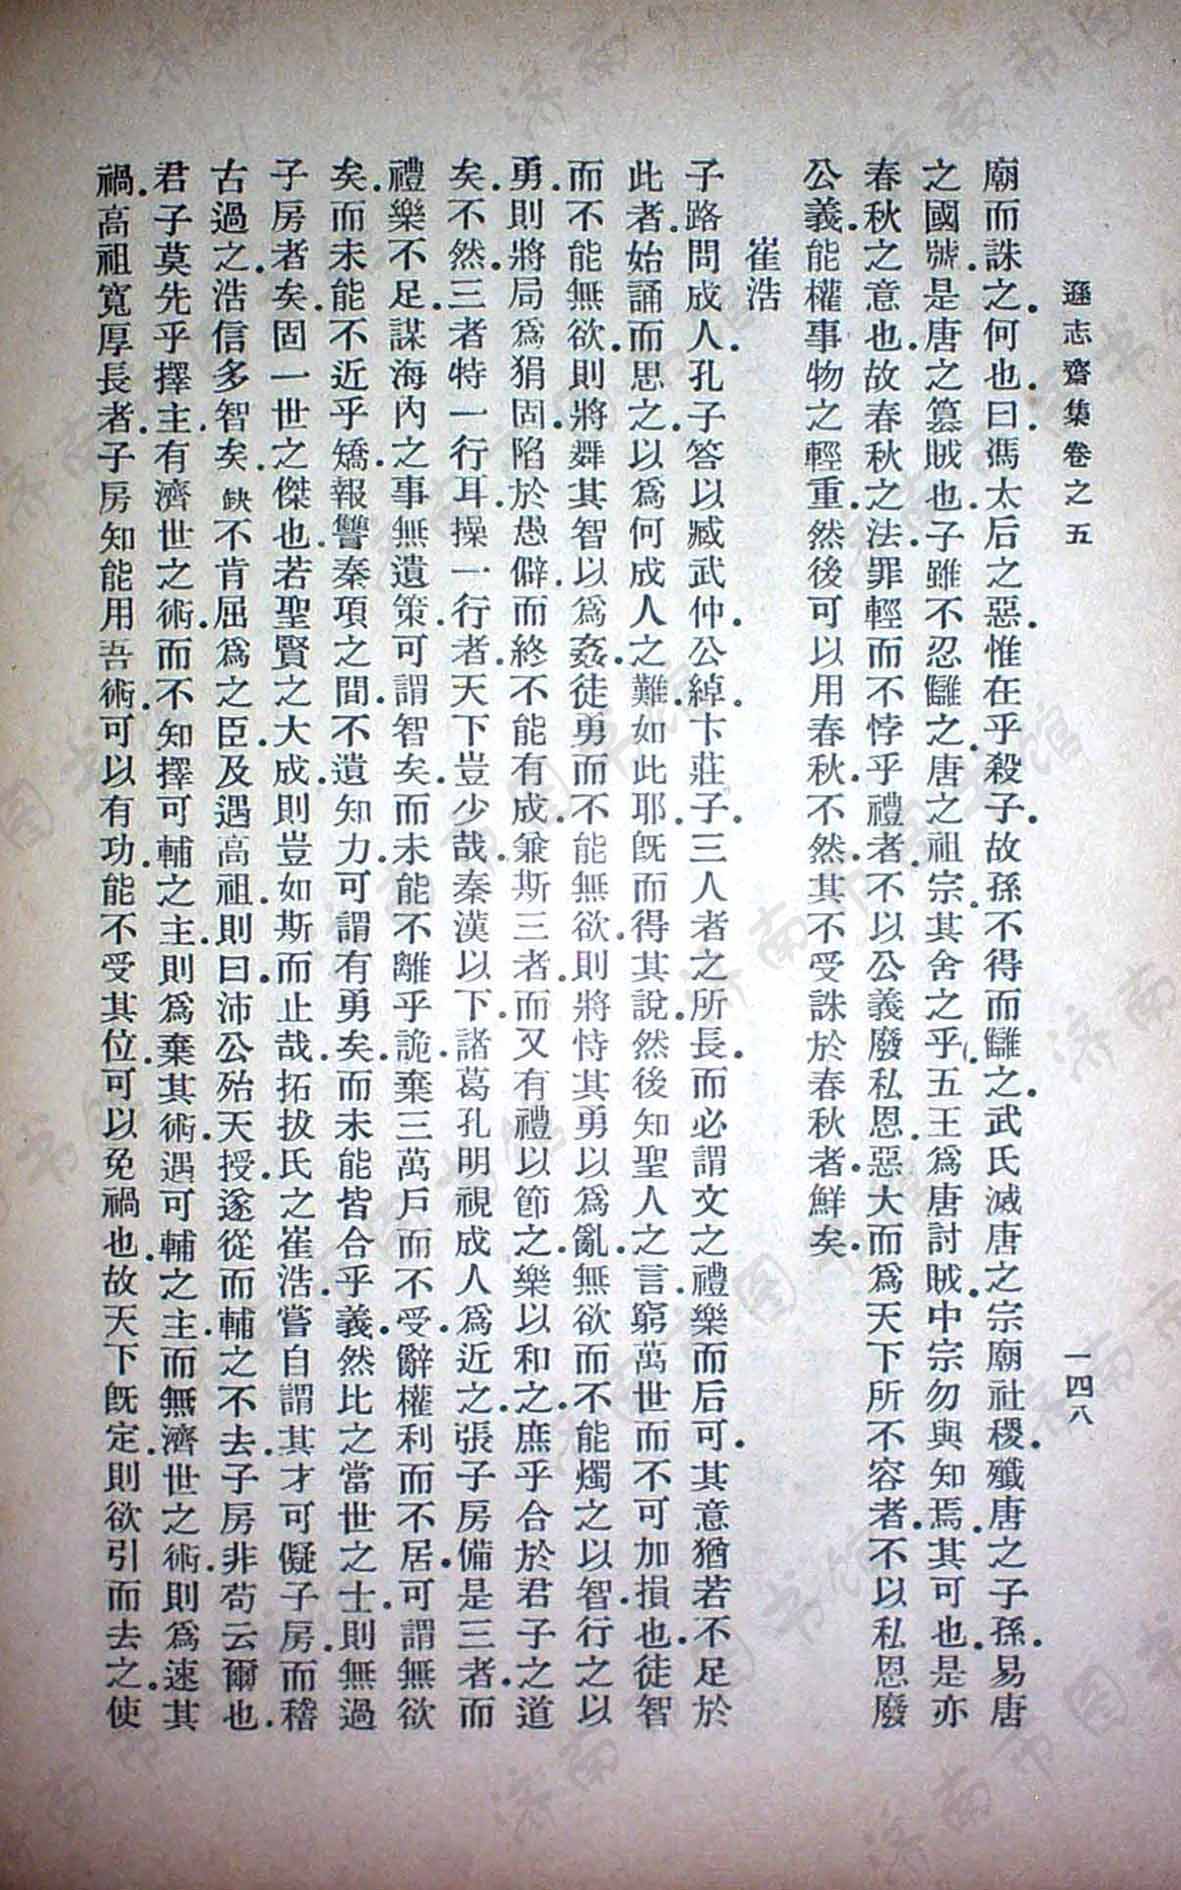 遜志齋集卷之五
一四八
廟而誅之何也曰馮太后之惡惟在乎殺子故孫不得而讎之武氏滅唐之宗廟社稷殲唐之子孫易唐
之國號是唐之簒賊也子雖不忍讎之唐之祖宗其舍之乎五王為唐討賊中宗勿與知焉其可也是亦
春秋之意也故春秋之法罪輕而不悖乎禮者不以公義廢私恩惡大而為天下所不容者不以私恩廢
公義能權事物之輕重然後可以用春秋不然其不受誅於春秋者鮮矣
崔浩
子路問成人孔子答以臧武仲公綽卞莊子三人者之所長而必謂文之禮樂而后可其意猶若不足於
此者始誦而思之以為何成人之難如此耶既而得其說然後知聖人之言窮萬世而不可加損也徒智
而不能無欲則將舞其智以為姦徒勇而不能無欲則將恃其勇以為亂無欲而不能燭之以智行之以
勇則將局為狷固陷於愚僻而終不能有成兼斯三者而又有禮以節之樂以和之庶乎合於君子之道
矣不然三者特一行耳操一行者天下豈少哉秦漢以下諸葛孔明視成人為近之張子房備是三者而
禮樂不足謀海內之事無遺策可謂智矣而未能不離乎詭棄三萬戶而不受辭權利而不居可謂無欲
矣而未能不近乎矯報讐秦項之間不遺知力可謂有勇矣而未能皆合乎義然比之當世之士則無過
子房者矣固一世之傑也若聖賢之大成則豈如斯而止哉拓拔氏之崔浩嘗自謂其才可儗子房而稽
古過之浩信多智矣缺不肯屈為之臣及遇高祖則曰沛公殆天授遂從而輔之不去子房非苟云爾也
君子莫先乎擇主有濟世之術而不知擇可輔之主則為棄其術遇可輔之主而無濟世之術則為速其
禍高祖寬厚長者子房知能用吾術可以有功能不受其位可以免禍也故天下既定則欲引而去之使